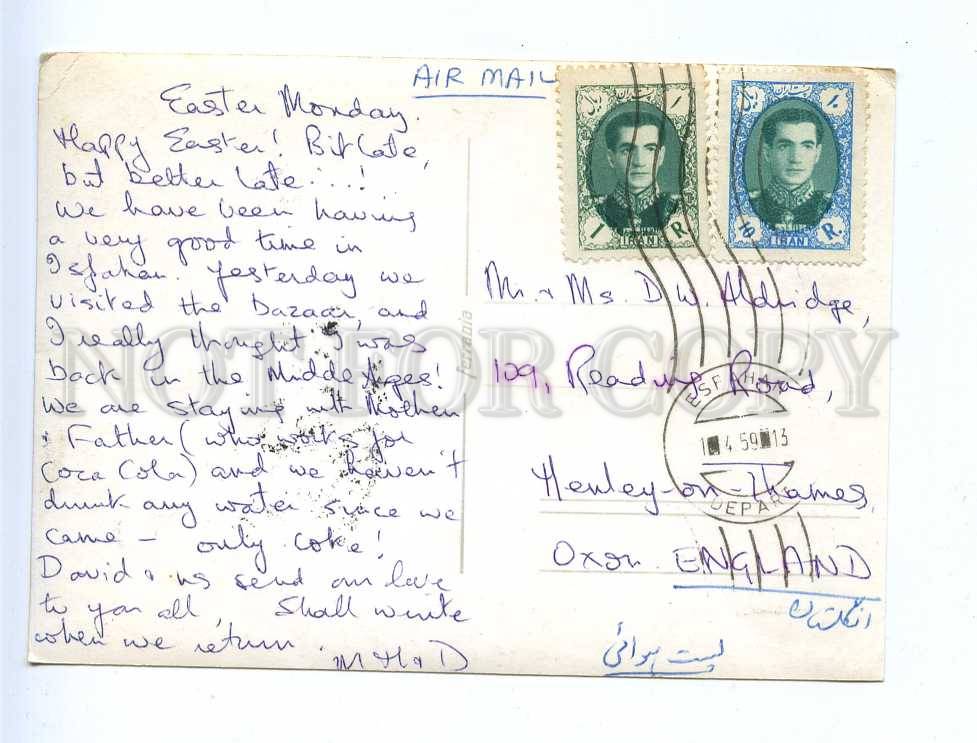 AIR MAIL
Easter Monday.
Happy Easter! Bit late,
but better late...!
We have been having
a very good time in
Isfahan. Yesterday we
visited the bazaar, and
I really thought I was
back in the Middle Ages!
We are staying with Mother
& Father (who works for
Coca Cola) and we haven't
drunk any water since we
came - only coke!
David & us send our love
to you all, Shall write
when we return.
M & D
ریال ۱ پست ایران
1 R.
IRAN
ریال ۱۰ پست ایران
10 R.
IRAN
Mr. & Ms. D. W. Aldridge,
109, Reading Road,
Henley-on-Thames,
Oxon. ENGLAND
انگلستان
پست هوائی
ESFAHAN
4 59 13
DEPART
Ferrania
NOT FOR COPY